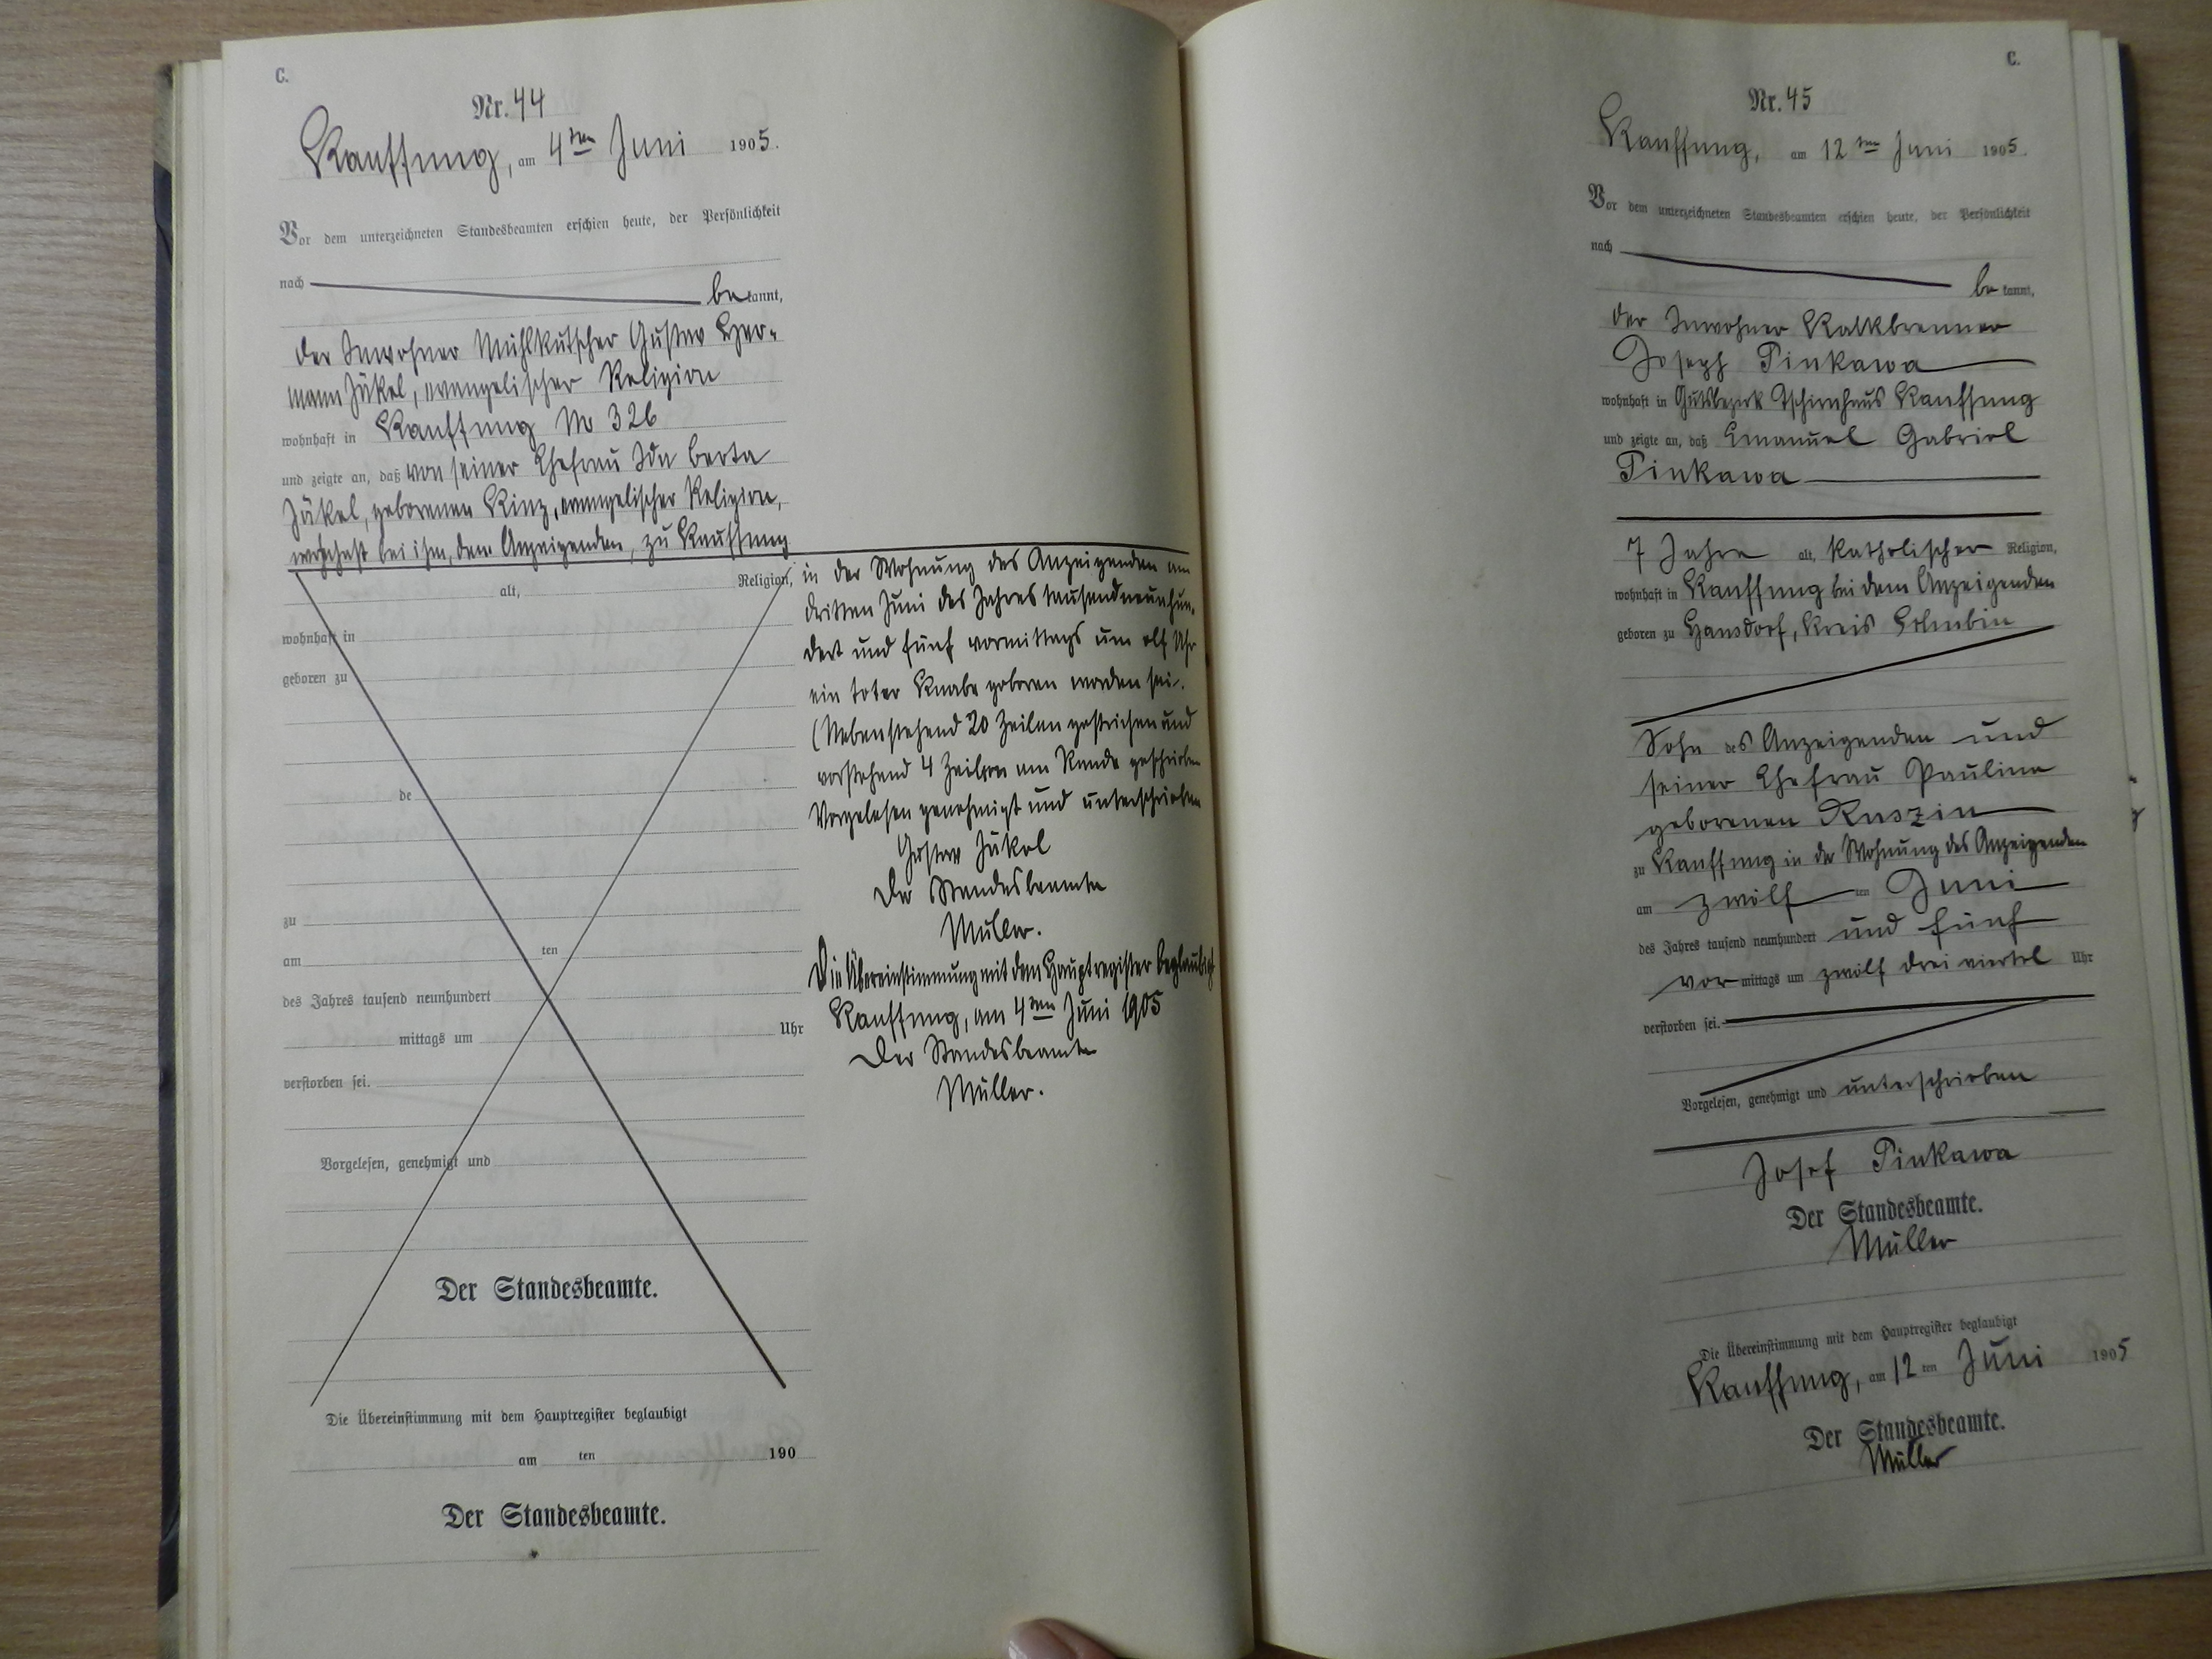 C.
Nr. 44
Kauffung, am 4ten Juni 1905.
Vor dem unterzeichneten Standesbeamten erschien heute, der Persönlichkeit
nach be kannt,
der Inwohner Mühlkutscher Gustav Her-
mann Jäkel, evangelischer Religion
wohnhaft in Kauffung No 326
und zeigte an, daß von seiner Ehefrau Ida Berta
Jäkel, geborenen Kinz, evangelischer Religion,
wohnhaft bei ihm, dem Anzeigenden, zu Kauffung
alt, Religion,
wohnhaft in
geboren zu
de
zu
am ten
des Jahres tausend neunhundert
mittags um Uhr
verstorben sei.
Vorgelesen, genehmigt und
Der Standesbeamte.
Die Übereinstimmung mit dem Hauptregister beglaubigt
am ten 190
Der Standesbeamte.
in der Wohnung des Anzeigenden am
dritten Juni des Jahres tausendneunhun-
dert und fünf vormittags um elf Uhr
ein toter Knabe geboren worden sei.
(Nebenstehend 20 Zeilen gestrichen und
vorstehend 4 Zeilen am Rande geschrieben
Vorgelesen genehmigt und unterschrieben
Gustav Jäkel
Der Standesbeamte
Müller.
Die Übereinstimmung mit dem Hauptregister beglaubigt
Kauffung, am 4ten Juni 1905
Der Standesbeamte
Müller.
C.
Nr. 45
Kauffung, am 12ten Juni 1905.
Vor dem unterzeichneten Standesbeamten erschien heute, der Persönlichkeit
nach be kannt,
der Inwohner Kalkbrenner
Joseph Pinkawa
wohnhaft in Gutsbezirk Tschirnhaus Kauffung
und zeigte an, daß Emanuel Gabriel
Pinkawa
7 Jahre alt, katholischer Religion,
wohnhaft in Kauffung bei dem Anzeigenden
geboren zu Hansdorf, Kreis
Sohn des Anzeigenden und
seiner Ehefrau Pauline
geborenen Ruszin
zu Kauffung in der Wohnung des Anzeigenden
am zwölf ten Juni
des Jahres tausend neunhundert und fünf
vor mittags um zwölf drei viertel Uhr
verstorben sei.
Vorgelesen, genehmigt und unterschrieben
Josef Pinkawa
Der Standesbeamte.
Müller
Die Übereinstimmung mit dem Hauptregister beglaubigt
Kauffung, am 12 ten Juni 1905
Der Standesbeamte.
Müller